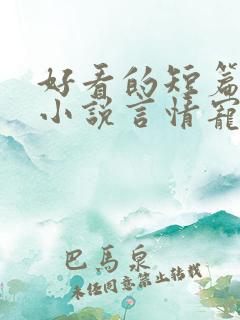 好看的短篇
小说言情宠
巴馬泉
未经同意禁止转载